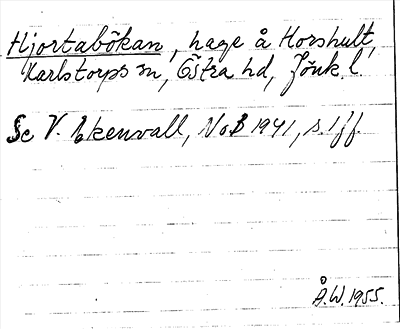 Hjortabökan, hage å Horshult,
Karlstorps sn, Östra hd, Jönk. l.
Se V. Ekenvall, NoB 1941, s. 1 ff.
Å.W. 1955.